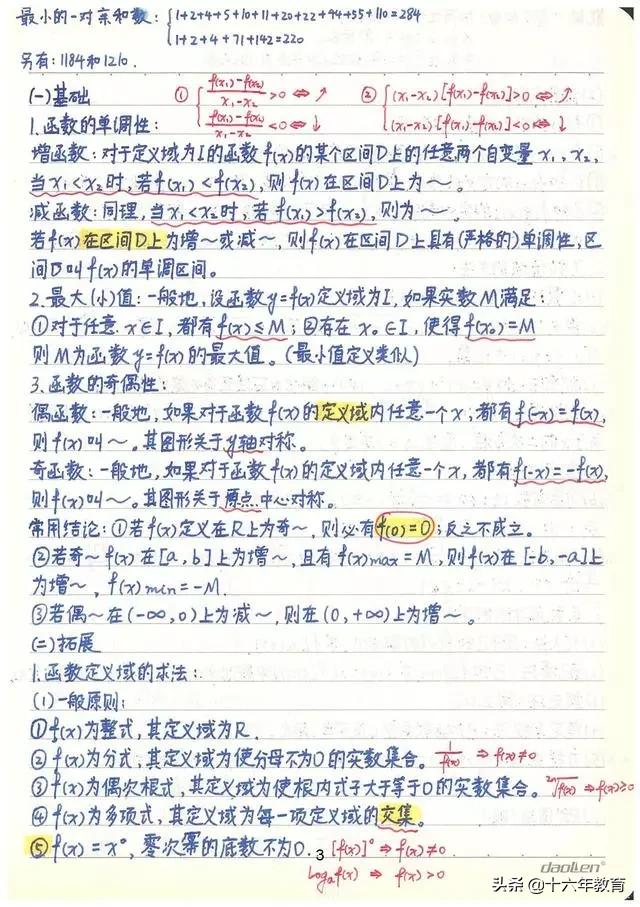 最小的一对亲和数: { 1+2+4+5+10+11+20+22+44+55+110=284
1+2+4+71+142=220
另有: 1184和1210.
(一)基础 ① { (f(x₁)-f(x₂))/(x₁-x₂) >0 ⇔ ↗ ② { (x₁-x₂)[f(x₁)-f(x₂)]>0 ⇔ ↗
1. 函数的单调性: (f(x₁)-f(x₂))/(x₁-x₂) <0 ⇔ ↓ (x₁-x₂)[f(x₁)-f(x₂)]<0 ⇔ ↓
增函数: 对于定义域为I的函数f(x)的某个区间D上的任意两个自变量x₁, x₂,
当x₁<x₂时, 若f(x₁)<f(x₂), 则f(x)在区间D上为~。
减函数: 同理, 当x₁<x₂时, 若f(x₁)>f(x₂), 则为~。
若f(x)在区间D上为增~或减~, 则f(x)在区间D上具有(严格的)单调性, 区
间D叫f(x)的单调区间。
2. 最大(小)值: 一般地, 设函数y=f(x)定义域为I, 如果实数M满足:
①对于任意x∈I, 都有f(x)≤M; ②存在x₀∈I, 使得f(x₀)=M
则M为函数y=f(x)的最大值。(最小值定义类似)
3. 函数的奇偶性:
偶函数: 一般地, 如果对于函数f(x)的定义域内任意一个x, 都有f(-x)=f(x),
则f(x)叫~。其图形关于y轴对称.
奇函数: 一般地, 如果对于函数f(x)的定义域内任意一个x, 都有f(-x)=-f(x),
则f(x)叫~。其图形关于原点中心对称.
常用结论: ①若f(x)定义在R上为奇~, 则必有f(0)=0; 反之不成立.
②若奇~f(x)在[a,b]上为增~, 且有f(x)max=M, 则f(x)在[-b,-a]上
为增~, f(x)min=-M.
③若偶~在(-∞,0)上为减~, 则在(0,+∞)上为增~。
(二)拓展
1. 函数定义域的求法:
(1)一般原则:
①f(x)为整式, 其定义域为R.
②f(x)为分式, 其定义域为使分母不为0的实数集合。 1/f(x) ⇒ f(x)≠0
③f(x)为偶次根式, 其定义域为使根内式子大于等于0的实数集合。 ²ⁿ√f(x) ⇒ f(x)≥0
④f(x)为多项式, 其定义域为每一项定义域的交集。
⑤f(x)=x⁰, 零次幂的底数不为0. 3 [f(x)]⁰ ⇒ f(x)≠0
logₐf(x) ⇒ f(x)>0
daolen
头条 @十六年教育